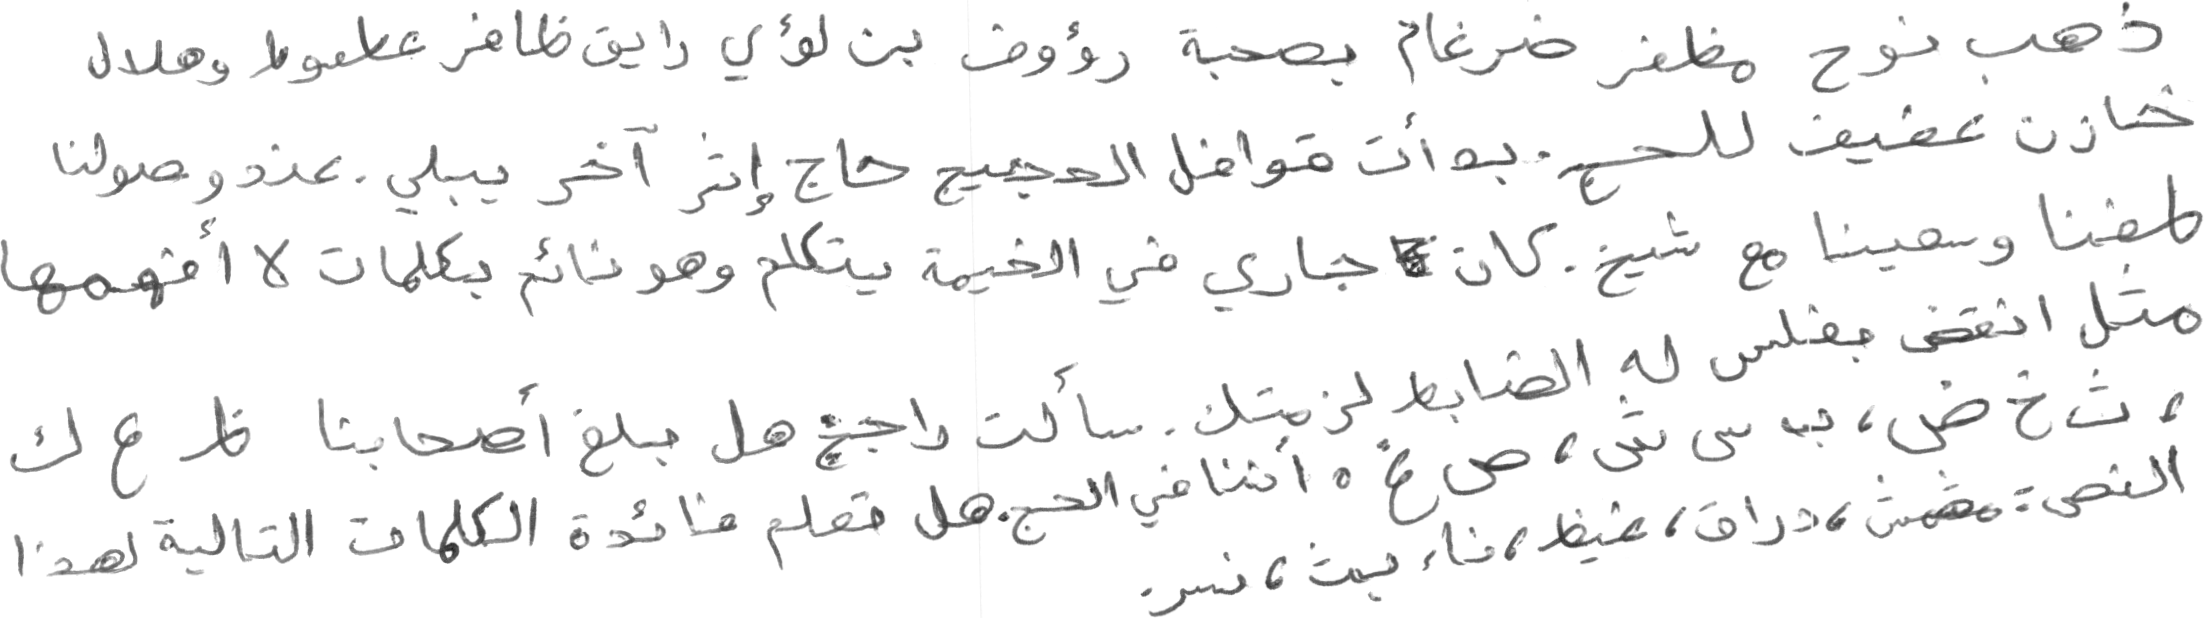 ذهب نوح مظفر ضرغام بصحبة رؤوف بن لؤي رايق ظافر عطعوط وهلال
خازن عفيف للحج. بدأت قوافل الحجيج حاج إثر آخر يبلي. عند وصولنا
طفنا وسعينا مع شيخ. كان جاري في الخيمة يتكلم وهو نائم بكلمات لا أفهمها
مثل انقض بفلس له الضابط لزمتك. سألت راجح هل بلغ أصحابنا ظ ع ك
، ث خ ض، ب س ش، ص غ ه أننا في الحج. هل تعلم فائدة الكلمات التالية لهذا
النص: مشمش، دراق، غيظ، فاء، بيت، نسر.